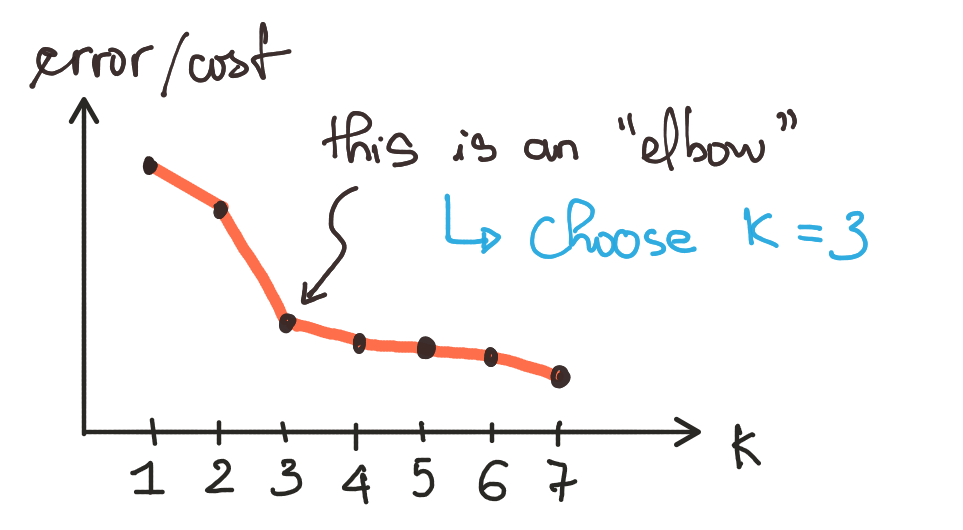 error/cost
this is an "elbow"
choose K = 3
K
1 2 3 4 5 6 7